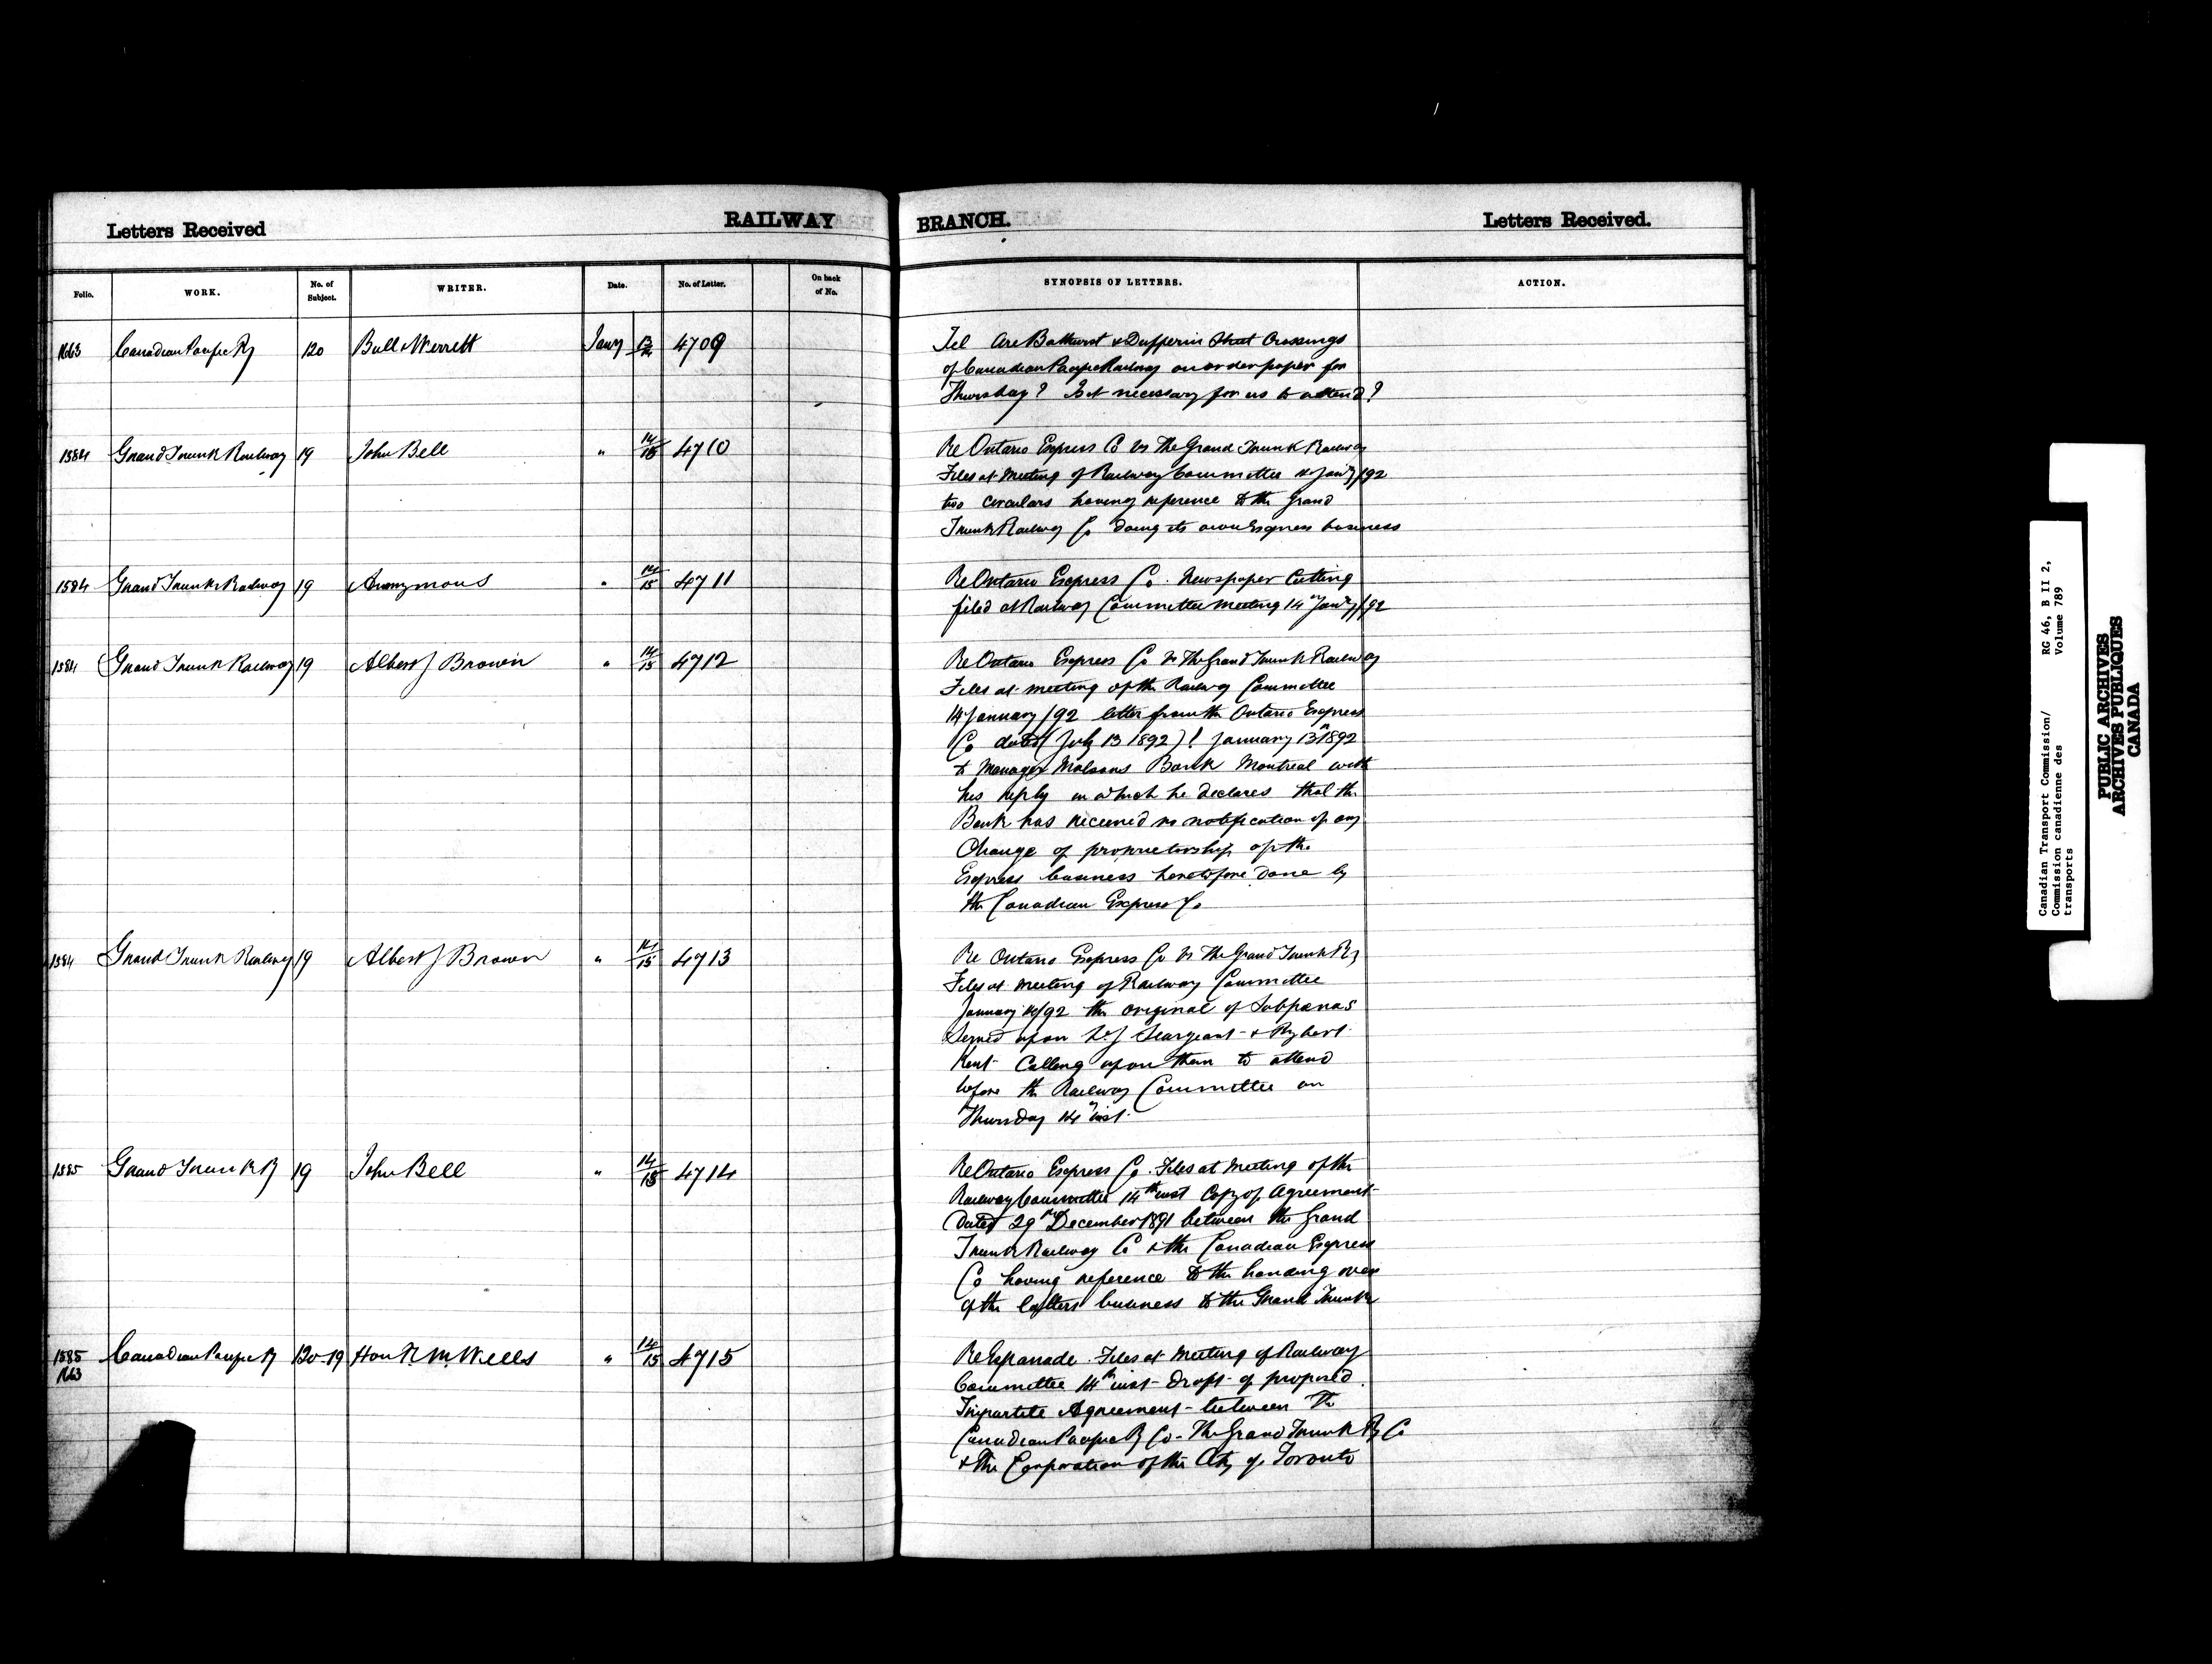 Letters Received RAILWAY BRANCH. Letters Received.
Folio. WORK. No. of Subject. WRITER. Date. No. of Letter. On back of No. SYNOPSIS OF LETTERS. ACTION.
1663 Canadian Pacific Ry 120 Bull & Werrett Jany 13/14 4709 Tel Are Bathurst & Dufferin Street Crossings
of Canadian Pacific Railway on order paper for
Thursday? Is it necessary for us to attend?
1584 Grand Trunk Railway 19 John Bell " 14/15 4710 Re Ontario Express Co vs The Grand Trunk Railway
Files at Meeting of Railway Committee 14 Jany/92
two circulars having reference to the Grand
Trunk Railway Co doing its own Express business
1584 Grand Trunk Railway 19 Anonymous " 14/15 4711 Re Ontario Express Co. Newspaper Cutting
filed at Railway Committee Meeting 14th Jany/92
1584 Grand Trunk Railway 19 Albert J Brown " 14/15 4712 Re Ontario Express Co vs The Grand Trunk Railway
Files at meeting of the Railway Committee
14 January/92 letter from the Ontario Express
Co dated (July 13 1892)! January 13th 1892
to Manager Molsons Bank Montreal with
his reply in which he declares that the
Bank has received no notification of any
Change of proprietorship of the
Express business heretofore done by
the Canadian Express Co
1584 Grand Trunk Railway 19 Albert J Brown " 14/15 4713 Re Ontario Express Co vs The Grand Trunk Ry
Files at Meeting of Railway Committee
January 14/92 the original of Subpœnas
Served upon Seargeant &
Kent Calling upon them to attend
before the Railway Committee on
Thursday 14th inst.
1585 Grand Trunk Ry 19 John Bell " 14/15 4714 Re Ontario Express Co. Files at Meeting of the
Railway Committee 14th inst Copy of Agreement
Dated 29th December 1891 between the Grand
Trunk Railway Co & the Canadian Express
Co having reference to the handing over
of the latters business to the Grand Trunk
1585 Canadian Pacific Ry 120-19 Hon R. M. Wells " 14/15 4715 Re Esplanade. Files at Meeting of Railway
1663 Committee 14th inst draft of proposed
Tripartite Agreement between The
Canadian Pacific Ry Co - The Grand Trunk Ry Co
& the Corporation of the City of Toronto
Canadian Transport Commission/ RG 46, B II 2,
Commission canadienne des Volume 789
transports
PUBLIC ARCHIVES
ARCHIVES PUBLIQUES
CANADA